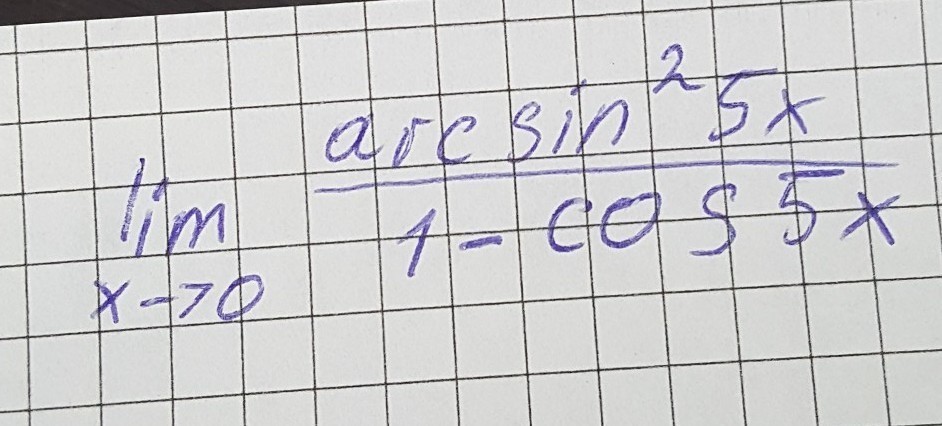 lim x->0 arcsin²5x / 1-cos5x